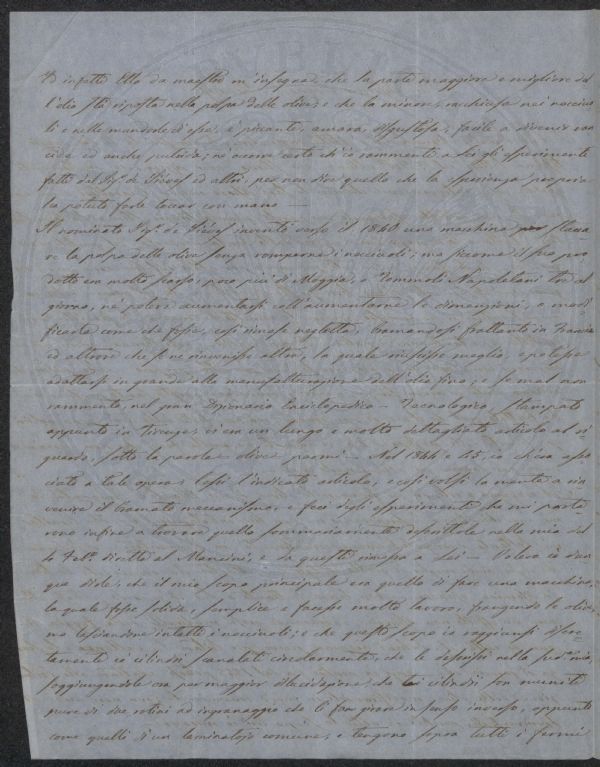 E infatti Ella da maestro m'insegna, che la parte maggiore e migliore del
l'olio sta riposta nella polpa delle olive, e che la minore, racchiusa nei noccio
li e nelle mandorle d'esse, è piccante, amara, disgustosa, facile a divenir ran
cida ed anche putrida; nè occorre certo ch'io rammenti a Lei gli esperimenti
fatti dal Sigr. de e quello che la esperienza propria
ha potuto farle toccar con mano —
Il nominato Sigr. de inventò verso il 1840 una macchina per stacca
re la polpa delle olive senza romperne i noccioli; ma siccome il suo pro
dotto era molto scarso, poco più di Moggia, e Tomnoli Napoletani tre al
giorno, nè potere aumentarsi coll'aumentarne le dimenzioni, e modi
ficarla come che fosse, così rimase negletta, bramandosi frattanto in Francia
ed altrove che se ne rinvenisse altra, la quale riuscisse meglio, e potesse
adattarsi in grande alla manufatturazione dell'olio fino; e se mal non
rammento, nel gran Dizionario Enciclopedico — Tecnologico stampato
appunto in vi era un lungo e molto dettagliato articolo al ri
guardo, sotto la parola olive parmi — Nel 1844 e 45, io ch'era asso
ciato a tale opera lessi l'indicato articolo, e così volsi la mente a rin
venire il bramato meccanismo, e feci degli esperimenti che mi porta
rono infine a trovare quello sommariamente descrittole nella mia del
4 Feb. diretta al Mancini, e da questi rimessa a Lei — Volevo io dun
que dirle, che il mio scopo principale era quello di fare una macchina,
la quale fosse solida, semplice e facesse molto lavoro, frangendo le olive
ma lasciandone intatti i noccioli; e che questo scopo io raggiunsi
tamente co' cilindri scanalati circolarmente, che le descrissi nella mia,
soggiungendole ora per maggior dilucidazione, che tai cilindri son muniti
pure di due rotini ad ingranaggio che li fan girare in senso inverso, appunto
come quelli d'un laminatojo comune, e tengono sopra tutti i fermi